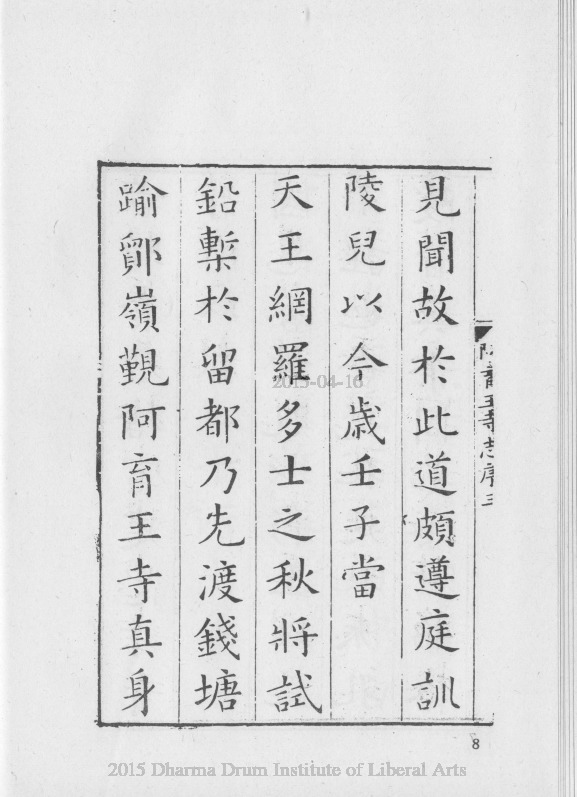 阿育王寺志序三
見聞故於此道頗遵庭訓
陵兒以今歲壬子當
天王網羅多士之秋將試
鉛槧於留都乃先渡錢塘
踰鄮嶺覲阿育王寺真身
8
2015-04-16
2015 Dharma Drum Institute of Liberal Arts